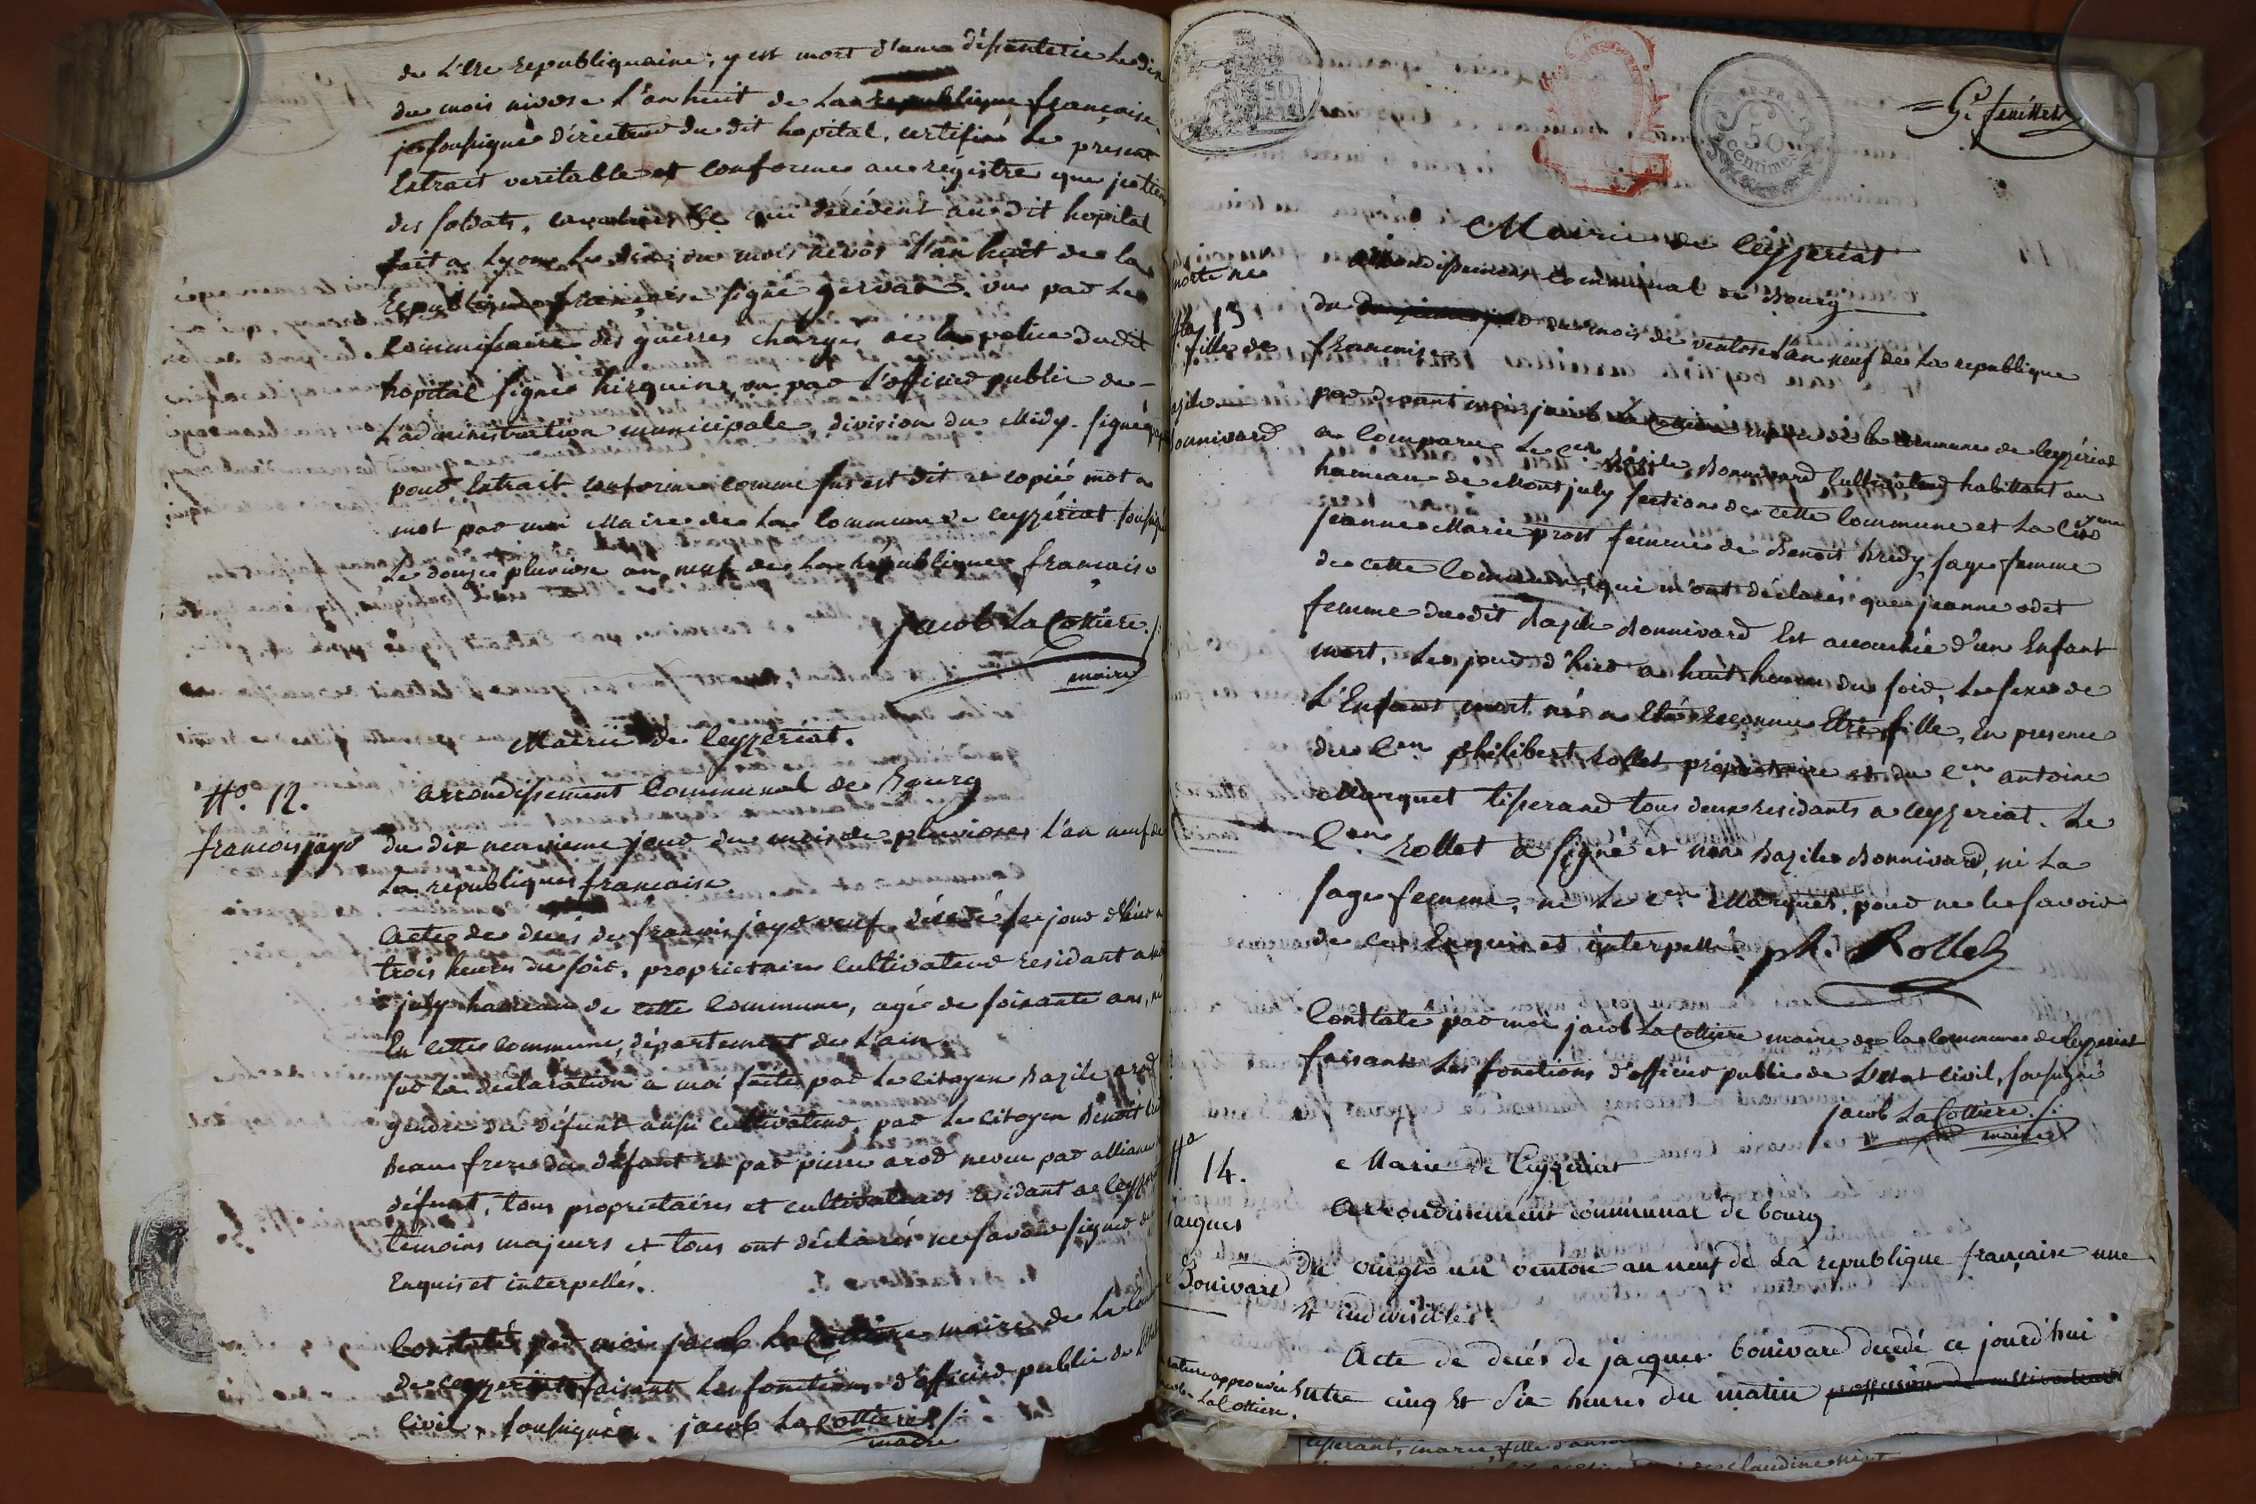 de L'Ere republiquaine, y est mort d'une dissenterie Le dix
du mois nivose L'an huit de La republique française.
je soussigné Directeur du dit hopital, certifie Le present
Extrait veritable et conforme au régistre que je tien
des soldats, cavaliers &c qui décèdent au dit hopital
fait a Lyon Le dix du mois nivos L'an huit de la
Republique française signé gervat. vu par Le
Commissaire des guerres chargé de la police dudit
hopital signé , vu par L'officier public de -
L'administration municipale, division du Midy. signé
pour Extrait conforme comme sus est dit et copié mot a
mot par moi Maire de La Commune de ceyzériat soussigné
Le douze pluviose an neuf de La République française
jacob La Cottiere ./.
maire
Mairie de Ceyzeriat.
Nº. 12.
arrondissement Communal de Bourg
francois jayr
du dix neuvieme jour du mois de pluviose L'an neuf de
La republique francaise.
Acte de decés de francois jayr veuf décédé Le jour d'hier a
trois heures du soir, proprietaire Cultivateur residant a
july hameau de cette Commune, agé de soixante ans, né
En cette commune, département de L'ain.
sur La déclaration a moi faite par Le citoyen Bazile arod
gendre du défunt aussi cultivateur, par Le citoyen Benoit
Beau frere du défunt et par pierre arod neveu par alliance
défunt, tous proprietaires et cultivateurs residant a ceyz
temoins majeurs et tous ont déclarés ne savoir signer de
Enquis et interpellés.
Constaté par moi jacob La Cottiere maire de La Com
de ceyzeriat faisant Les fonctions d'officier public de L'Etat
Civil, soussigné. jacob La Cottiere ./.
maire
50
50
Centimes
5e. feuillet
Mairie de Ceyzeriat
arrondissement Communal de Bourg
morte née
Nº 13
fille de
Bazile
Bonnivard
du du mois de ventose L'an neuf de La republique
francaise
par devant moi jacob La Cottiere maire de la Commune de Ceyzériat
a Comparu Le Cen. Bazile Bonnivard Cultivateur habittant au
hameau de Montjuly section de cette Commune et La Citoyenne
jeanne Marie prost femme de Benoit bredy, sage femme
de cette Commune, qui m'ont déclarés que jeanne odet
femme du dit Bazile Bonnivard Est accouchée d'un Enfant
mort, Le jour d'hier a huit heures du soir, Le sexe de
L'Enfant mort né a Eté Reconnu Etre fille, En presence
du Cen philibert Rollet propriétaire et du Cen. antoine
Marquet tisserand tous deux residants a ceyzeriat. Le
Cen Rollet a signé et non Bazile Bonnivard, ni La
sage femme, ni Le Cen. Marquet, pour ne Le savoir
de ce Enquis et interpellé. ph. Rollet
Constaté par moi jacob La Cottiere maire de la Commune de Ceyzeriat
faisant Les fonctions d'officier public de L'etat civil, soussigné
jacob La Cottiere ./.
maire
Nº 14.
Marie de Ceyzeriat
Arrondissement communal de bourg
jacques
Bonivard
Du vingt un ventose an neuf de La republique française une
Et indivisible
Acte de decés de jacques bonivard decedé ce jourd'hui
Entre cinq Et six heures du matin profession de cultivateur
rature approuvée
La Cottiere.